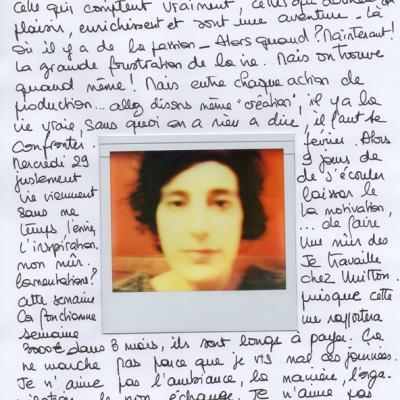 celle qui comptent vraiment,
plaisir, enrichissent et sont une aventure - Là
où il y a de la passion - Alors quand? Maintenant!
La grande frustration de la vie. Mais on trouve
quand même! Mais entre chaque action de
production... allez disons même "création", il y a la
vie vraie, sans quoi on a rien a dire, il faut se
confronter. février. Alors
Mercredi 29 jours de
justement de s'écouler
vie viennent laisser le
sans me la motivation,
temps l'envie, ... de faire
l'inspiration, une mûr des
non mûr. Je travaille
lamentations? chez Vuitton.
cette semaine puisque cette
Ca fonctionne me rapportera
semaine
3000€ dans 3 mois, ils sont longs à payer. Ca
ne marche pas parce que je vis mal ces journées.
Je n'aime pas l'ambiance, la manière, l'orga
le non échange. Je n'aime pas